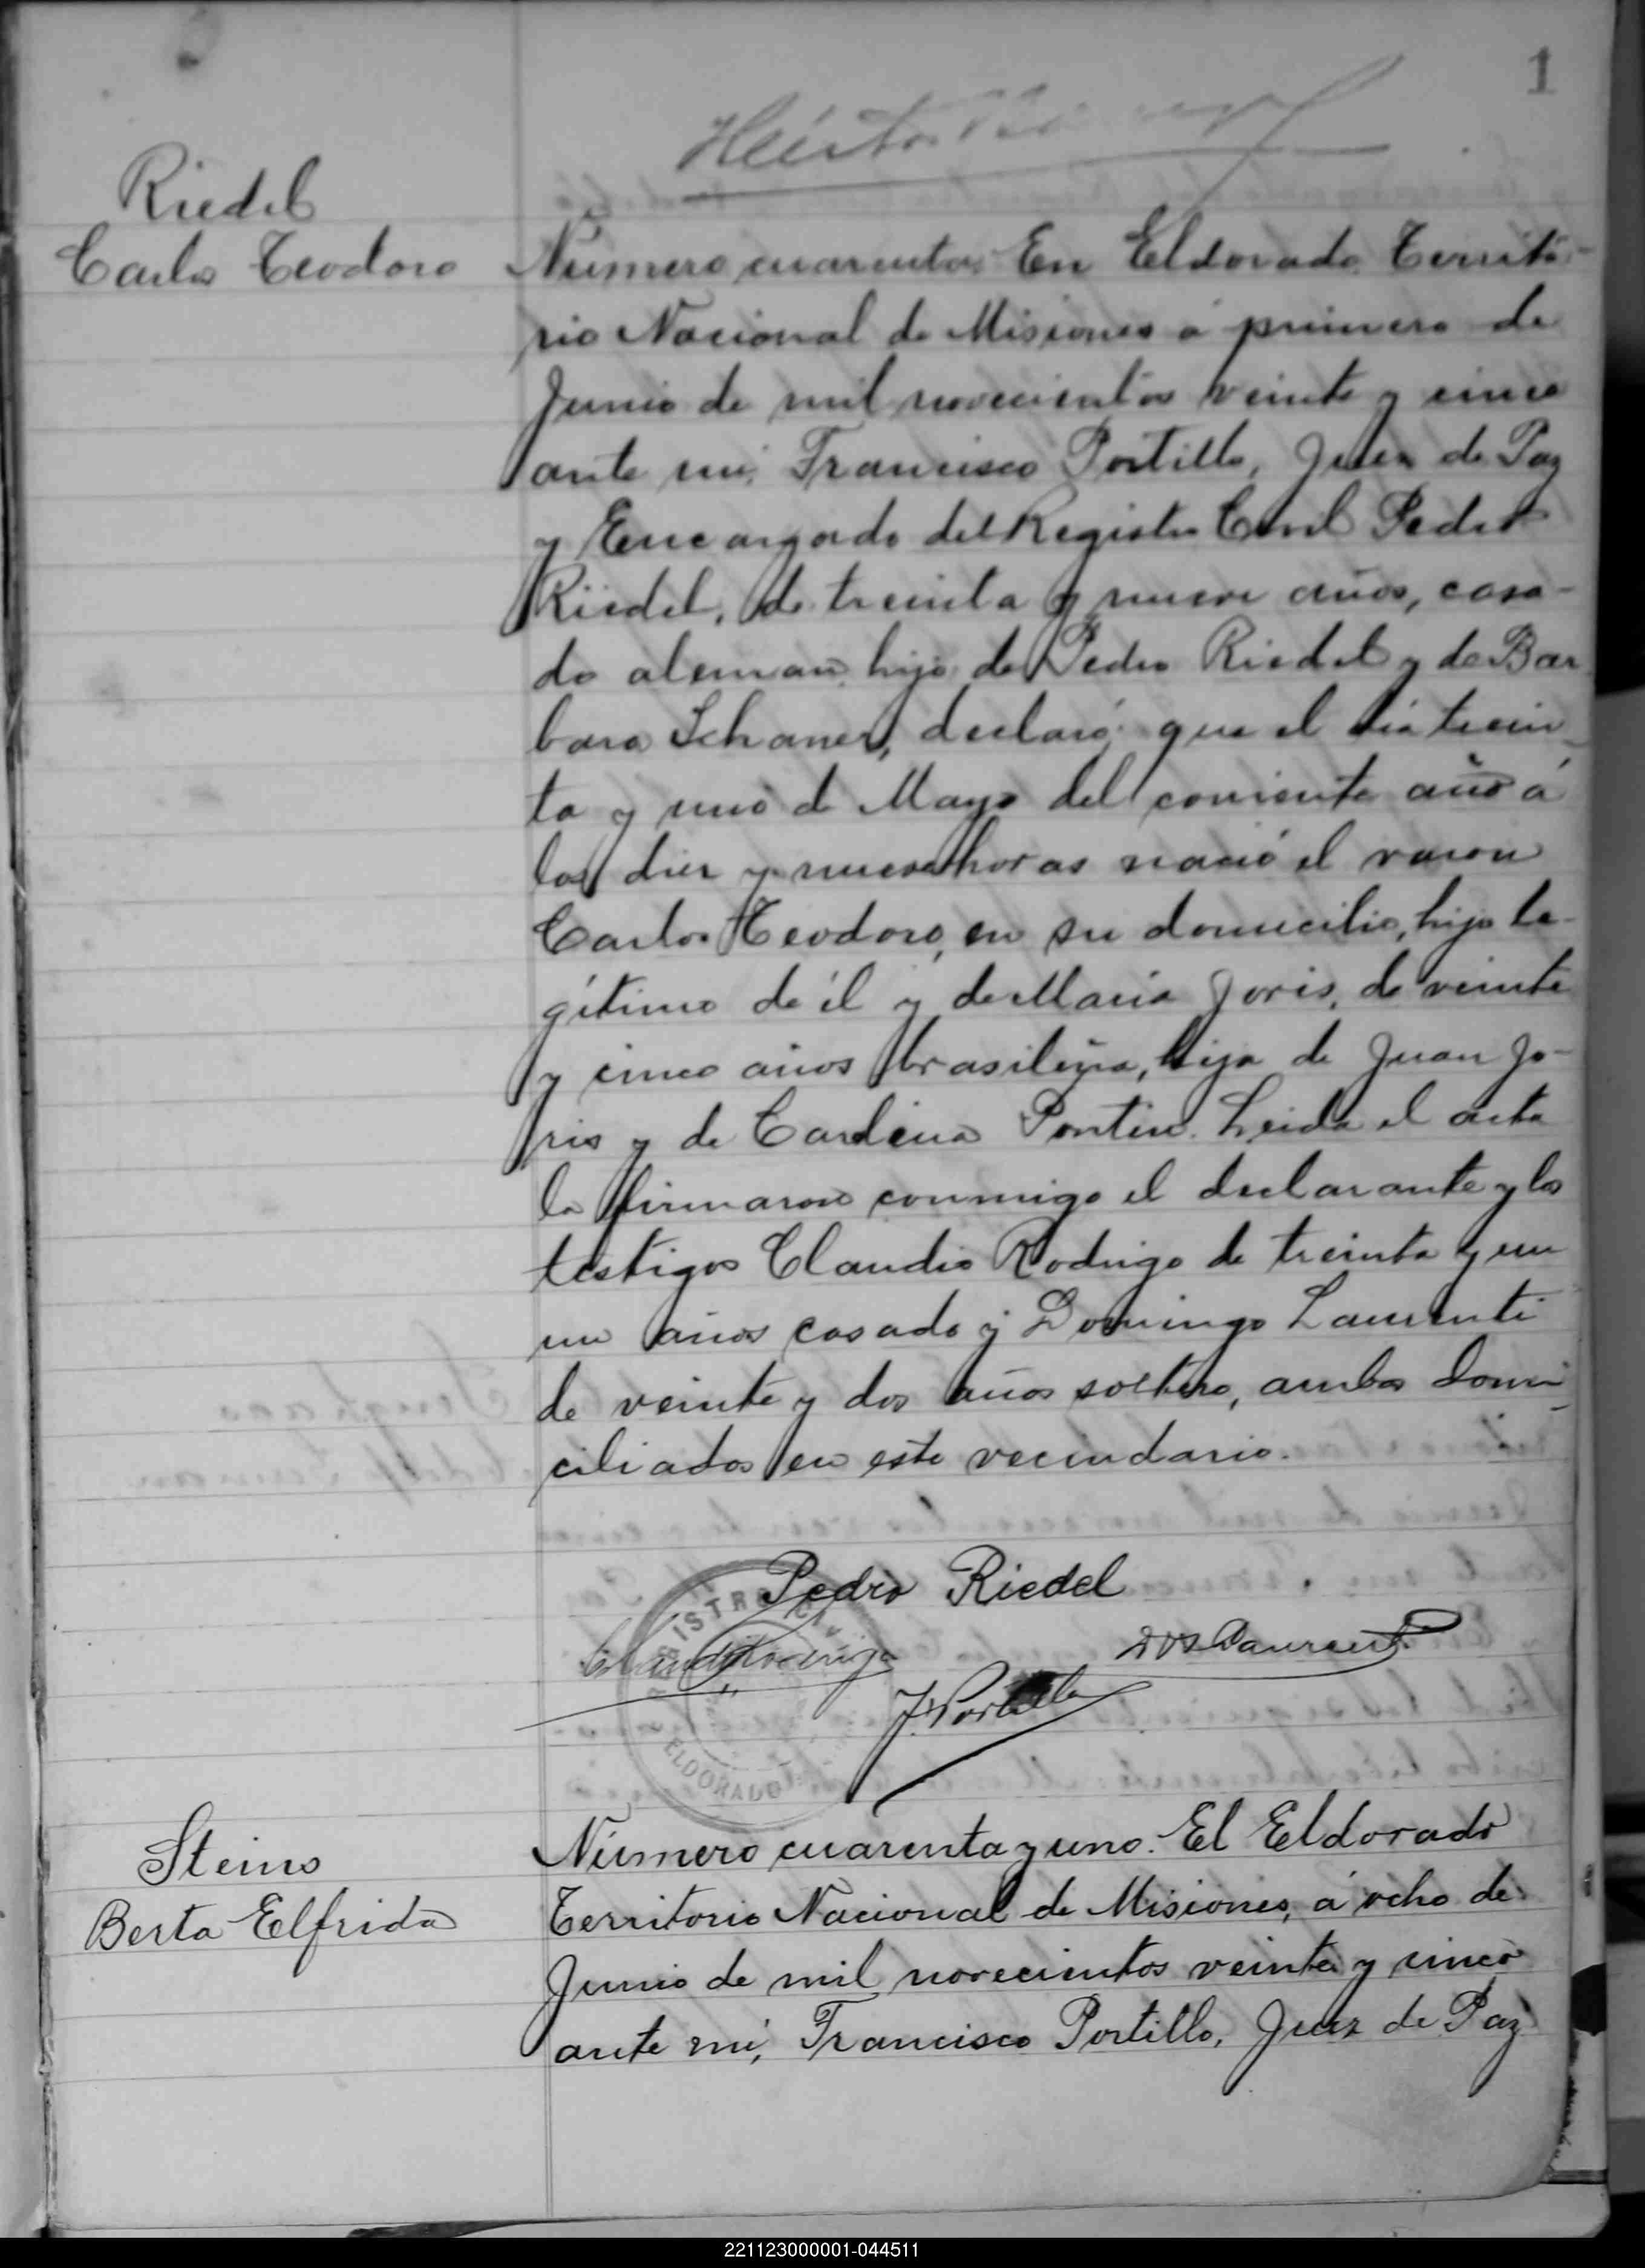 1
Riedel
Carlos Teodoro
Número cuarenta. En Eldorado Territo-
rio Nacional de Misiones á primero de
Junio de mil novecientos veinte y cinco
ante mi, Francisco Portillo, Juez de Paz
y Encargado del Registro Civil Pedro
Riedel, de treinta y nueve años, casa-
do aleman, hijo de Pedro Riedel y de Bar
bara Schaner, declaró: que el dia trein
ta y uno de Mayo del corriente año á
las diez y nueve horas nació el varon
Carlos Teodoro, en su domicilio, hijo le-
gítimo de él y de María Joris, de veinte
y cinco años brasileña, hija de Juan Jo-
ris y de Carolina Pontin. Leida el acta
la firmaron conmigo el declarante y los
testigos Claudio Rodrigo de treinta y un
un años casado y Domingo Laurenti
de veinte y dos años soltero, ambos domi
ciliados en este vecindario.
Pedro Riedel
REGISTRO CIVIL
Claudio Rodrigo
F. Portillo
ELDORADO
Steins
Berta Elfrida
Número cuarenta y uno. El Eldorado
Territorio Nacional de Misiones, á ocho de
Junio de mil novecientos veinte y cinco
ante mí, Francisco Portillo, Juez de Paz
221123000001-044511